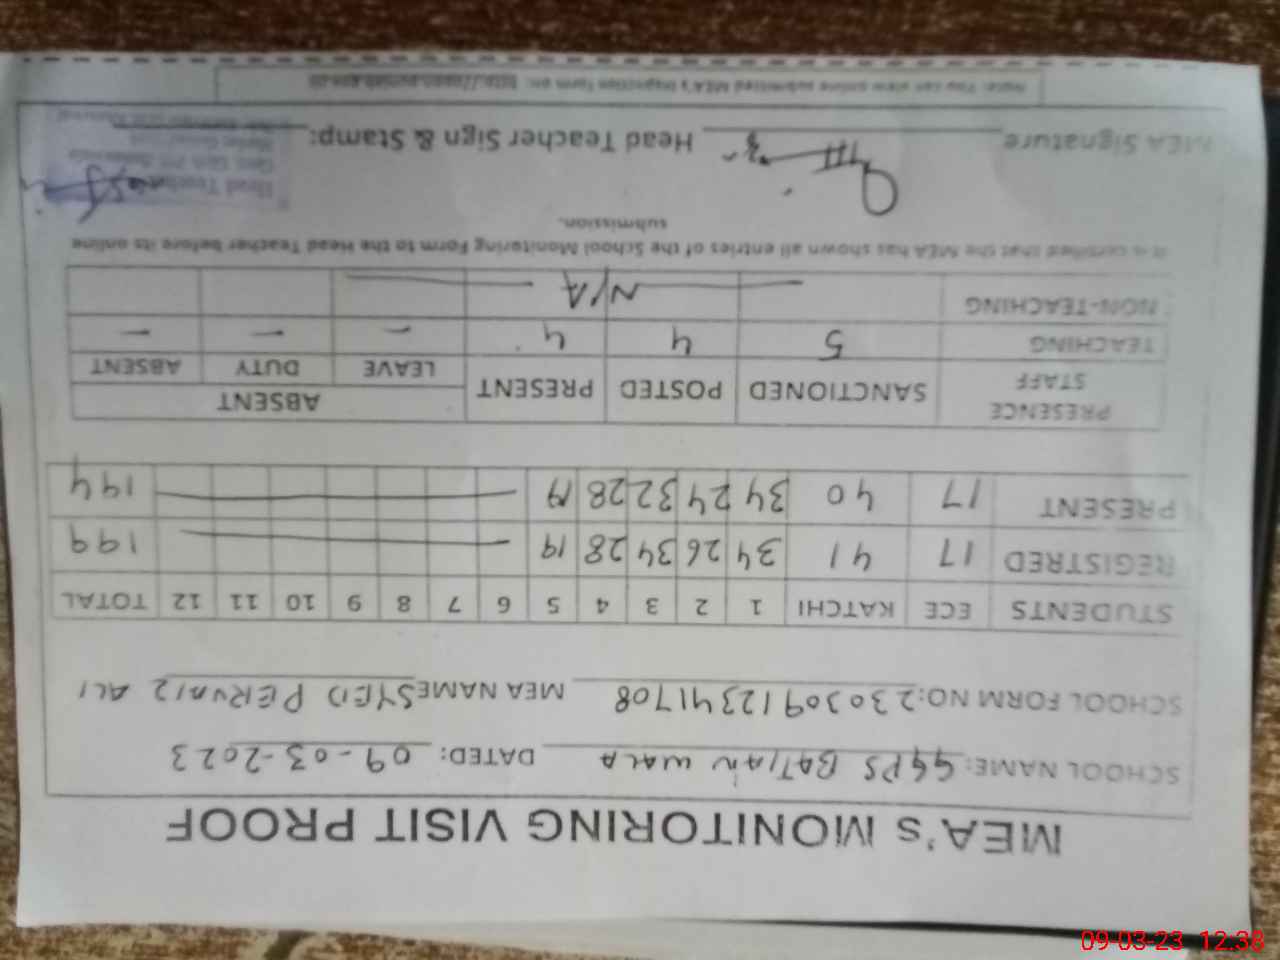 MEA's MONITORING VISIT PROOF
SCHOOL NAME: GGPS BATIAN WALA DATED: 09-03-2023
SCHOOL FORM NO: 2303091234 1708 MEA NAME SYED PERVAIZ ALI
STUDENTS ECE KATCHI 1 2 3 4 5 6 7 8 9 10 11 12 TOTAL
REGISTRED 17 41 34 26 34 28 19 199
PRESENT 17 40 34 24 32 28 19 194
PRESENCE STAFF SANCTIONED POSTED PRESENT ABSENT
LEAVE DUTY ABSENT
TEACHING 5 4 4 - - -
NON-TEACHING N/A
It is certified that the MEA has shown all entries of the School Monitoring Form to the Head Teacher before its online
submission.
MEA Signature Head Teacher Sign & Stamp:
Head Teacher
Note: You can view online submitted MEA's inspection form on:
09-03-23 12:38